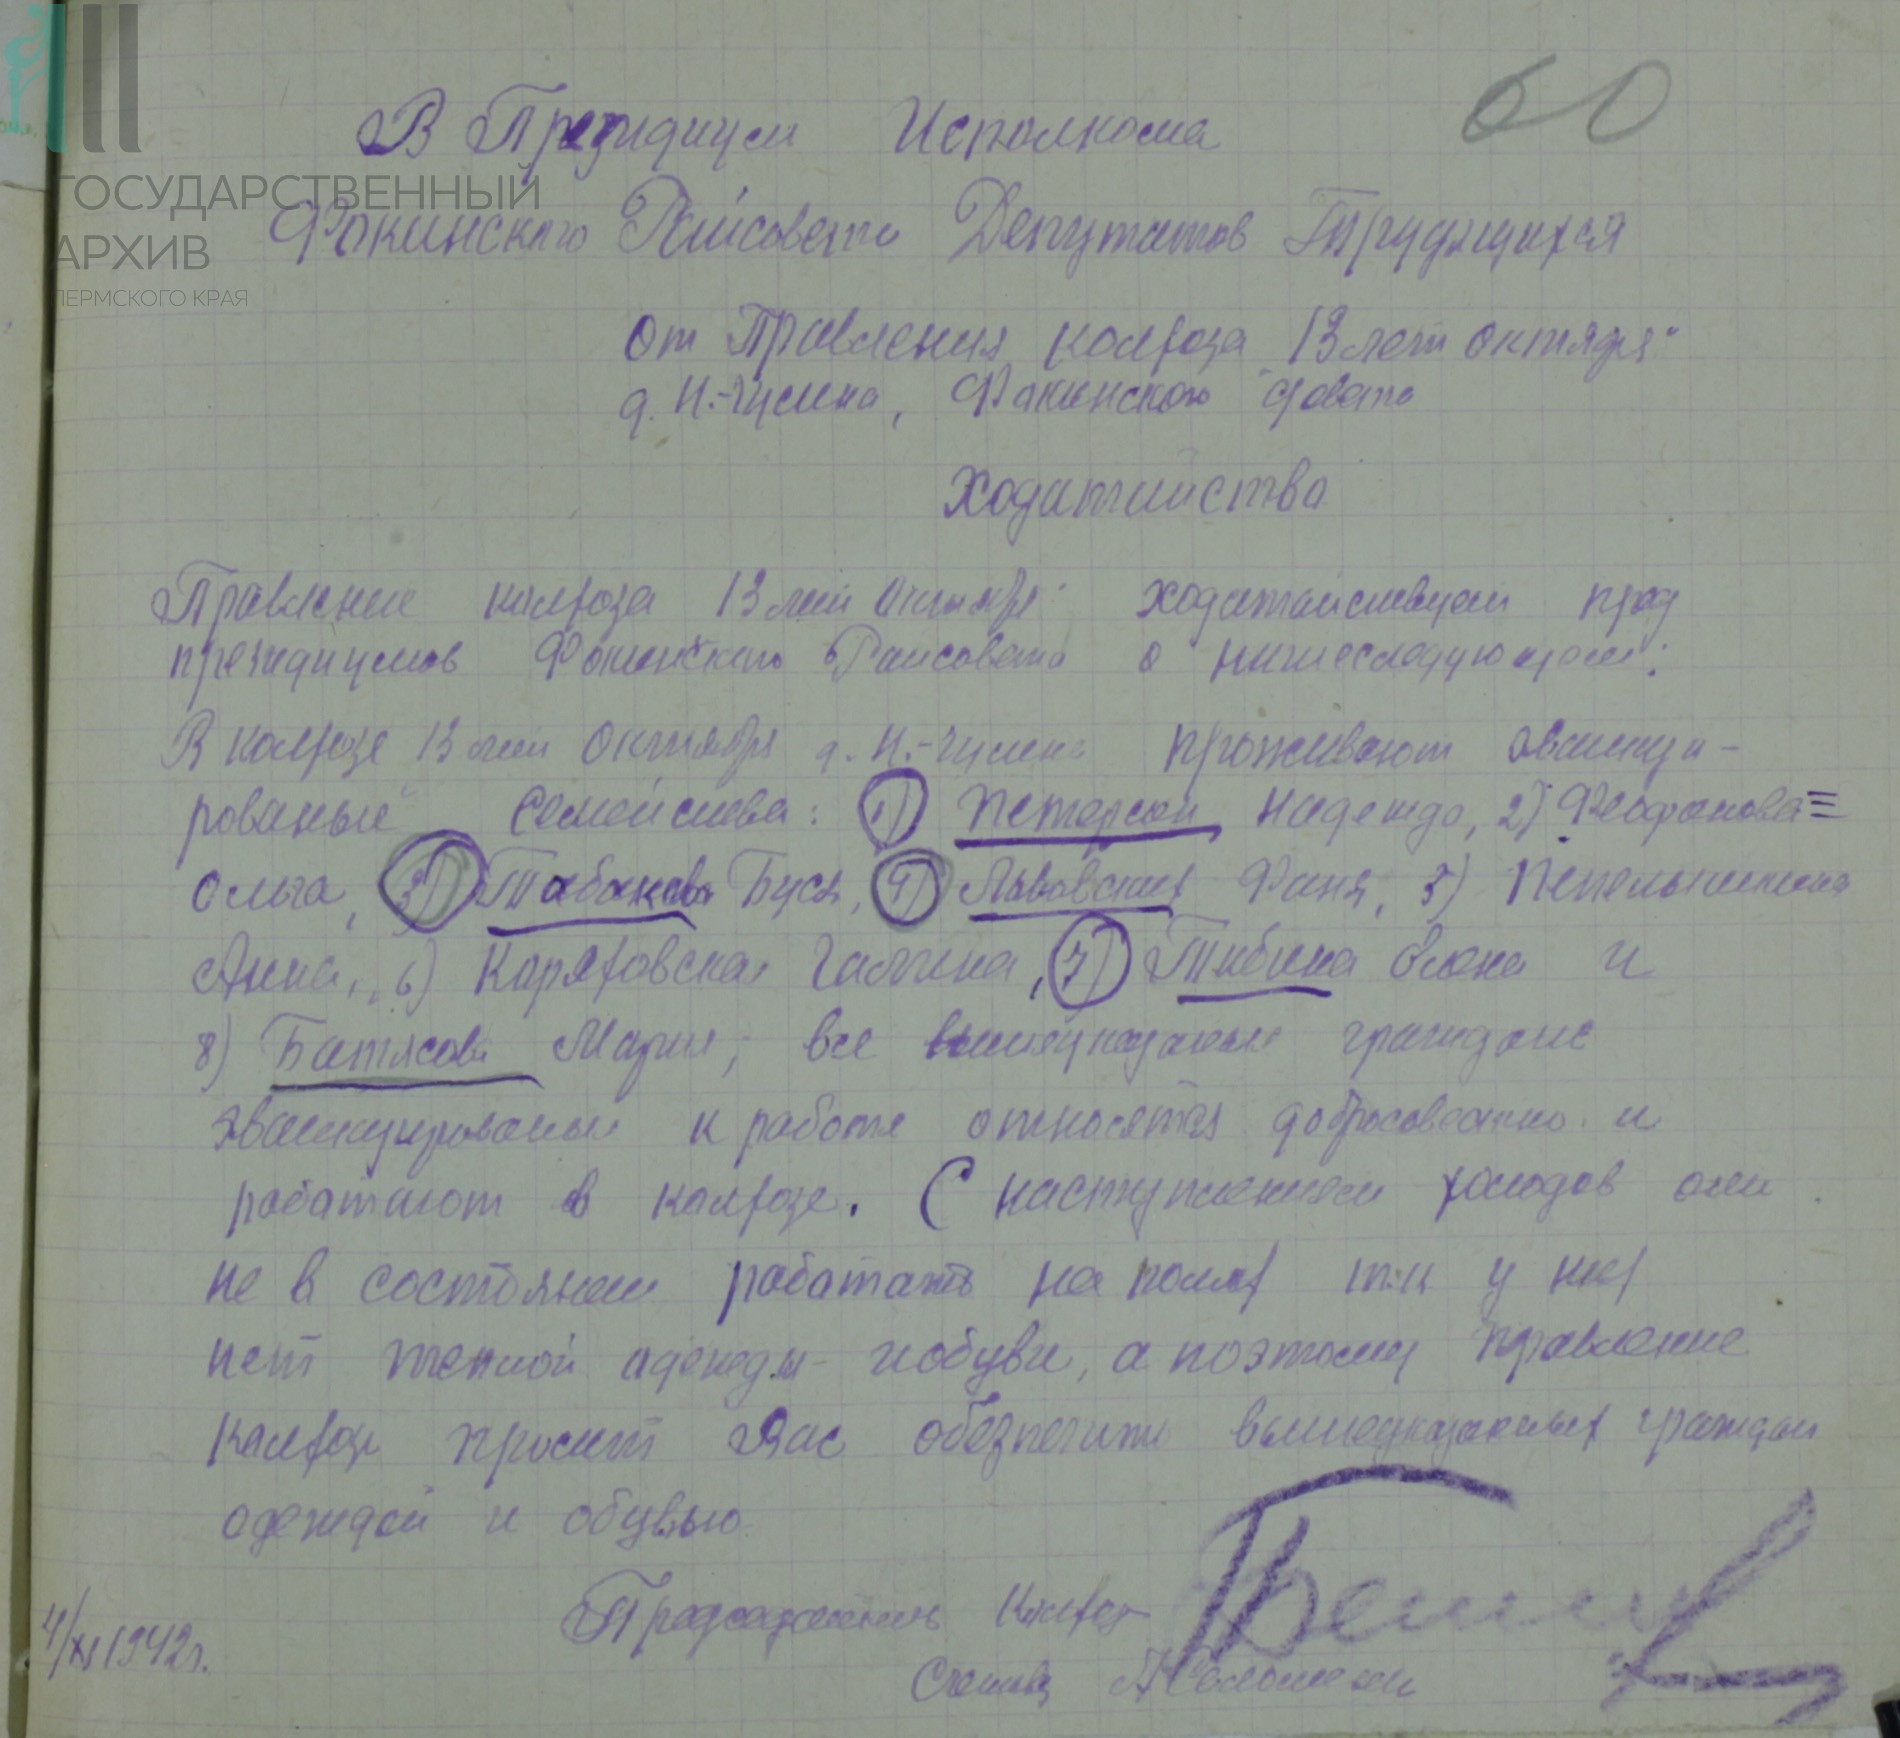 60
В Президиум Исполкома
ГОСУДАРСТВЕННЫЙ
АРХИВ
ПЕРМСКОГО КРАЯ
Фокинского Райсовета Депутатов Трудящихся
от Правления колхоза 13 лет октября"
д. Н.-Чусика, Фокинского с/совета
Ходатайства
Правление колхоза 13 лет Октября" ходатайствует пред
президиумов Фокинского Райсовета о нижеследующем:
В колхозе 13 лет Октября д. Н.-Чусика проживают эвакуи-
рованые семейства: 1) Петерсон Надежда, 2) Феофанова
Ольга, 3) Табакова Буся, 4) Львовская Фаня, 5)
Анна, 6) Каряховская Галина, 7) Тибина Елена и
8) Батясова Мария, все вышеуказаные граждане
эвакуированые к работе относятся добросовестно и
работают в колхозе. С наступлением холодов они
не в состоянии работать на полях т.к у них
нет теплой одежды и обуви, а поэтому правление
колхоза просит Вас обезпечить вышеуказаных граждан
одеждой и обувью.
Председатель Колхоза
4/XI 1942г.
Счетовод